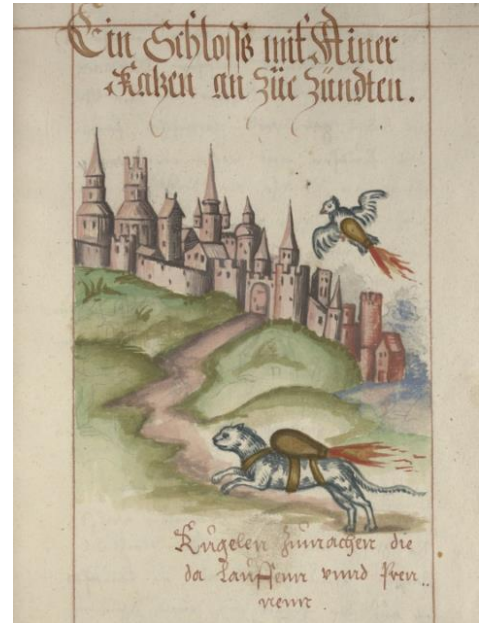 Ein Schloss mit Ainer
Katzen an Züe Zündten.
Kugelen Zumachen die
da Lauffenn vnnd Pren..
nenn.